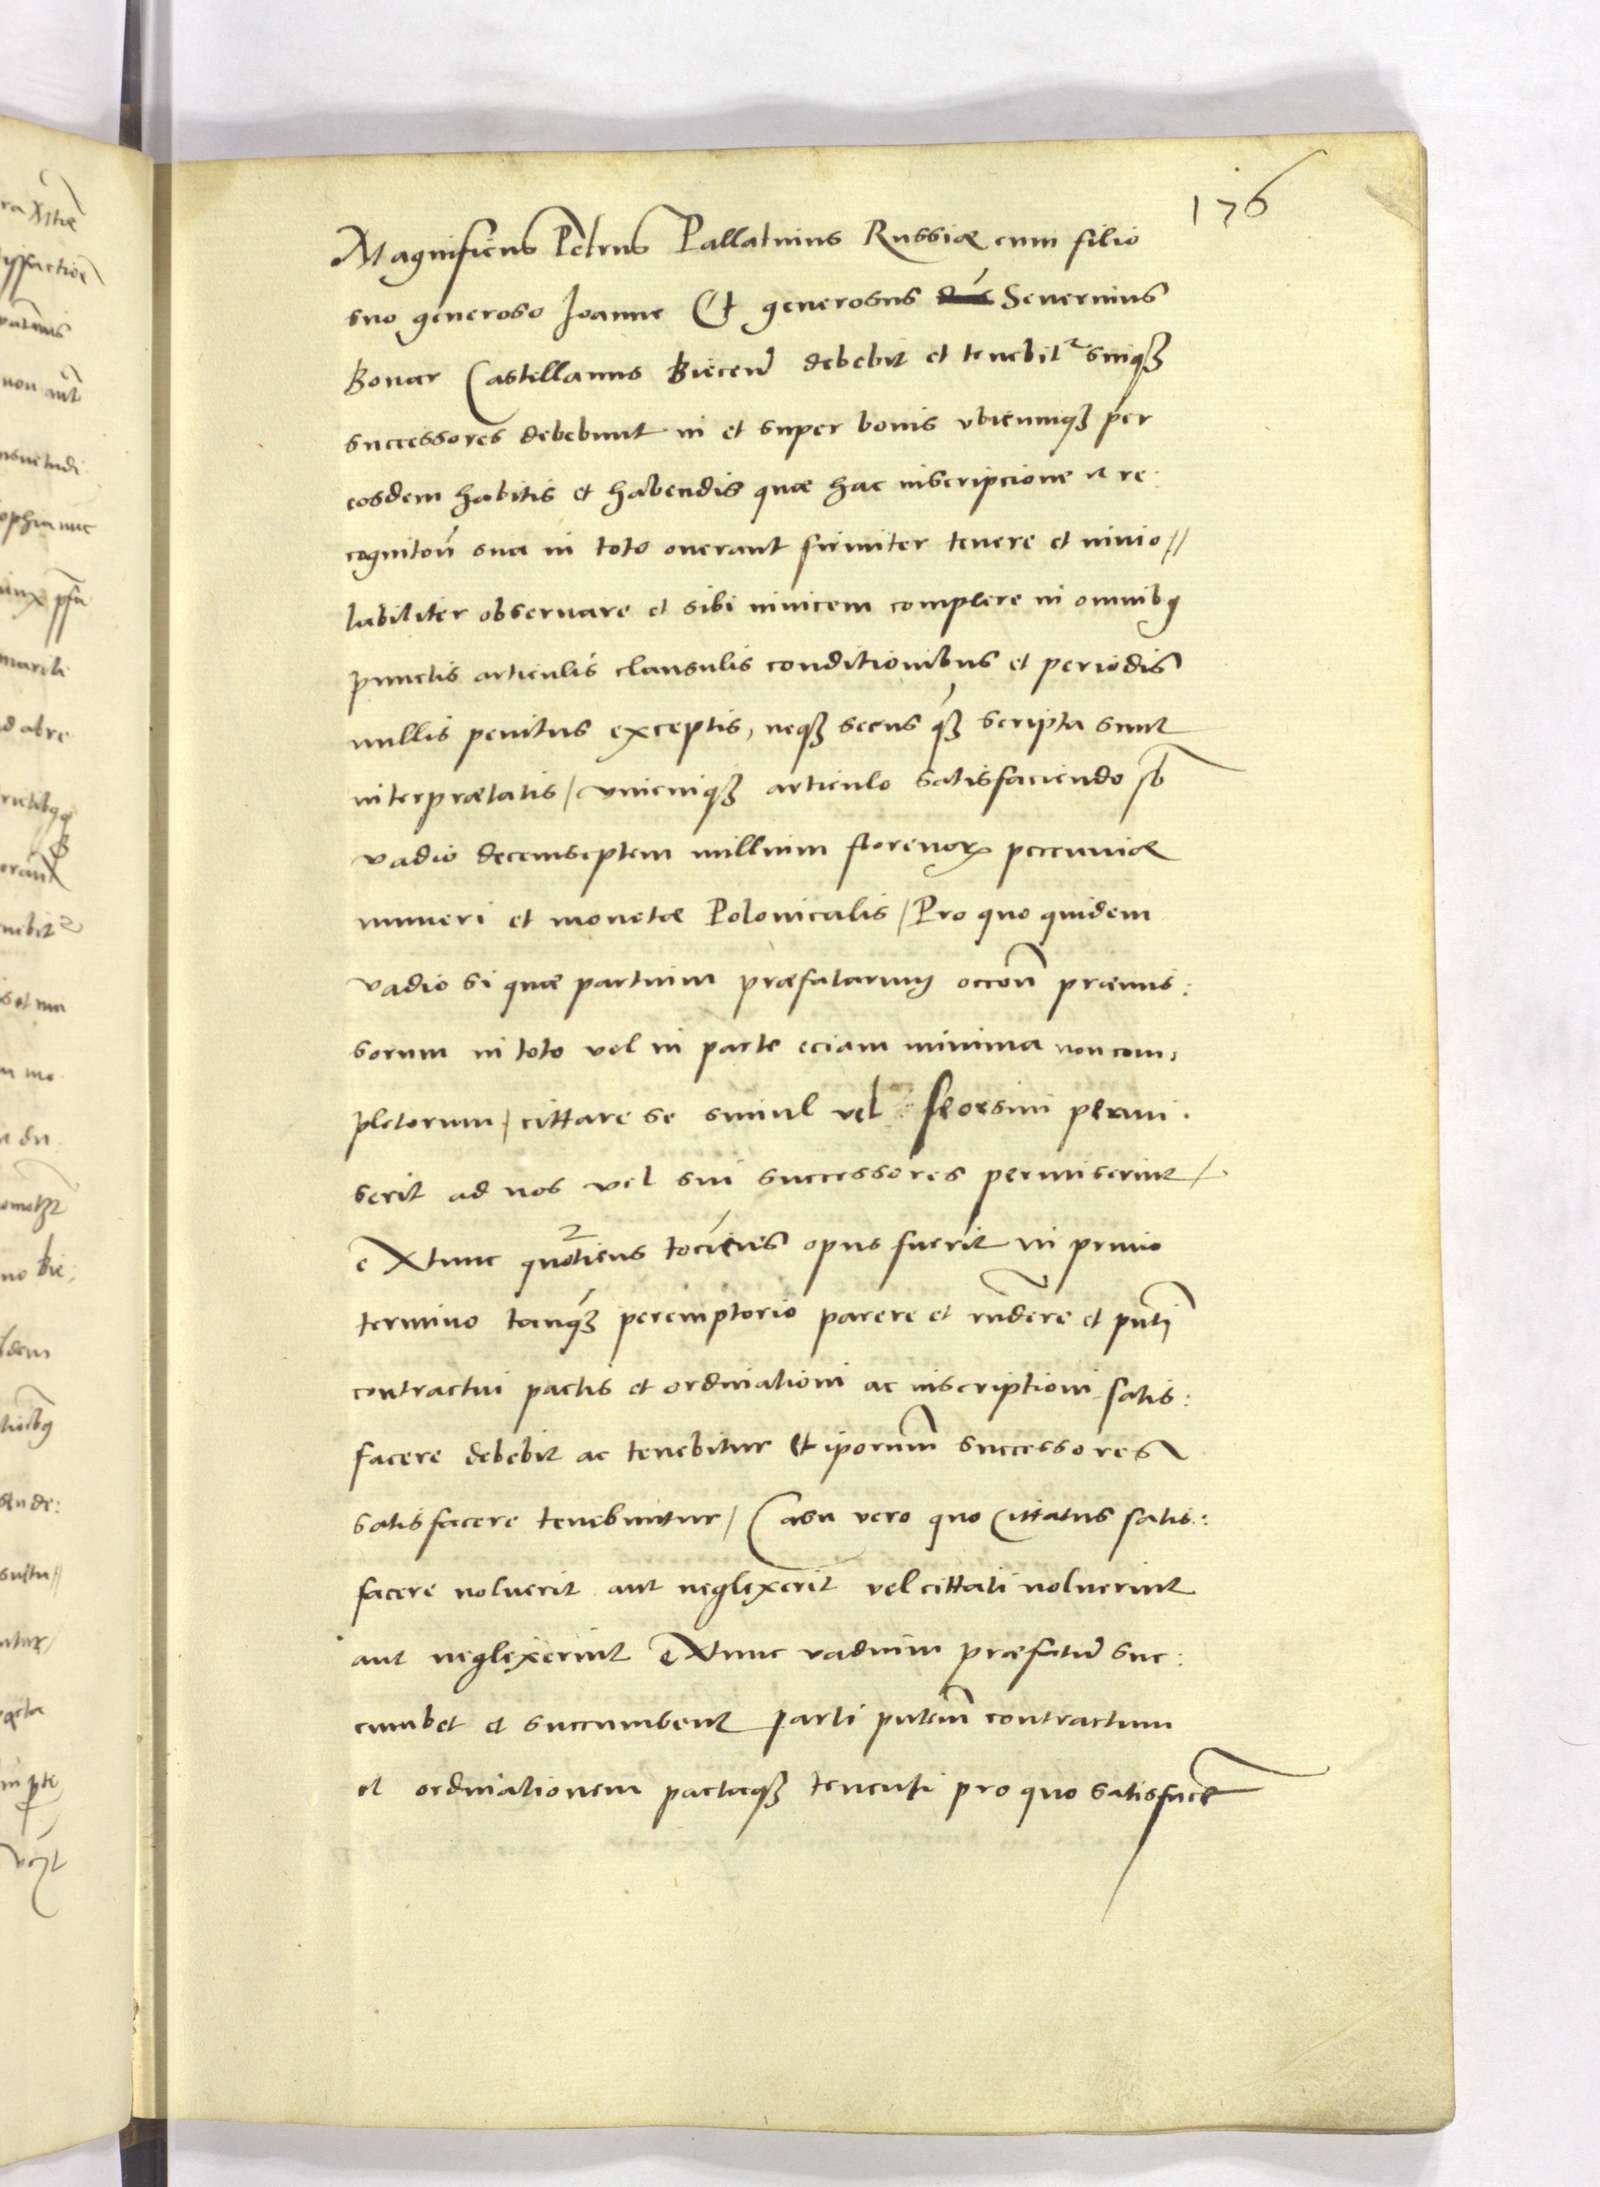 176
Magnificus Petrus Pallatinus Russiæ cum filio
suo generoso Joanne Et generosus Severinus
Bonar Castellanus Biecen̄ debebit et tenebitʳ suiqꝫ
successores debebunt in et super bonis ubicumqꝫ per
eosdem habitis et habendis quæ hac inscripcione et re:
cognitōn̄ sua in toto onerant firmiter tenere et invio//
labiliter observare et sibi invicem complere in omnibꝰ
punctis articulis clausulis conditionibus et periodis
nullis penitus exceptis, neqꝫ secus qꝫ́ scripta sunt
interprætatis / unicuiqꝫ articulo satisfaciendo sb̄
vadio decemseptem millium florenorꝝ peccuniæ
numeri et monetæ Polonicalis / Pro quo quidem
vadio si quæ partium præfatarum occōn̄ præmis:
sorum in toto vel in parte eciam minima non com,
pletorum / cittare se simul vel seorsim permi.
serit ad nos vel sui successores permiserint /.
eXtunc quotiens tociens opus fuerit in primo
termino tanqꝫ́ peremptorio parere et rn̄dere et pn̄ti
contractui pactis et ordinationi ac inscriptioni satis:
facere debebit ac tenebitur et ip̄orum successores
satisfacere tenebuntur / Casu vero quo Cittatus satis:
facere noluerit aut neglexerit vel cittati noluerint
aut neglexerint eXtunc vadium præfatū suc:
cumbet et succumbent parti pn̄tem̄ contractum
et ordinationem pactaqꝫ tenenti pro quo satisfacē